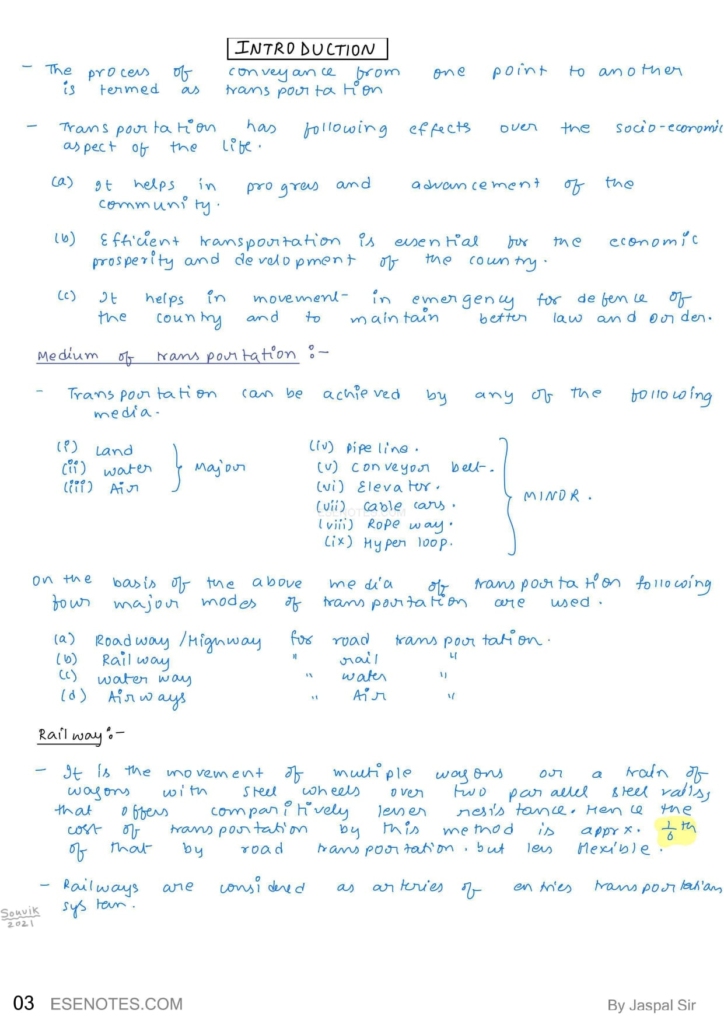 INTRODUCTION
- The process of conveyance from one point to another
is termed as transportation
- Transportation has following effects over the socio-economic
aspect of the life.
(a) It helps in progress and advancement of the
community.
(b) Efficient transportation is essential for the economic
prosperity and development of the country.
(c) It helps in movement- in emergency for defence of
the country and to maintain better law and order.
Medium of transportation :-
- Transportation can be achieved by any of the following
media.
(i) Land
(ii) water
(iii) Air
Major
(iv) Pipe line.
(v) conveyor belt.
(vi) Elevator.
(vii) cable cars.
ESENOTES.COM
(viii) Rope way.
(ix) Hyper loop.
MINOR.
On the basis of the above media of transportation following
four major modes of transportation are used.
(a) Roadway /Highway for road transportation.
(b) Railway " rail "
(c) water way " water "
(d) Airways " Air "
Railway :-
- It is the movement of multiple wagons or a train of
wagons with steel wheels over two parallel steel rails,
that offers comparitively lesser resistance. Hence the
cost of transportation by this method is apprx. 1/6 th
of that by road transportation. but less flexible.
- Railways are considered as arteries of entries transportation
system.
Souvik
2021
03 ESENOTES.COM
By Jaspal Sir